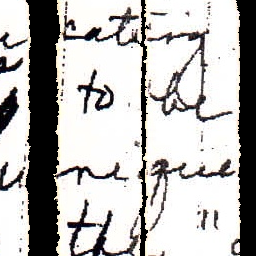 cating
to be
nique
the "